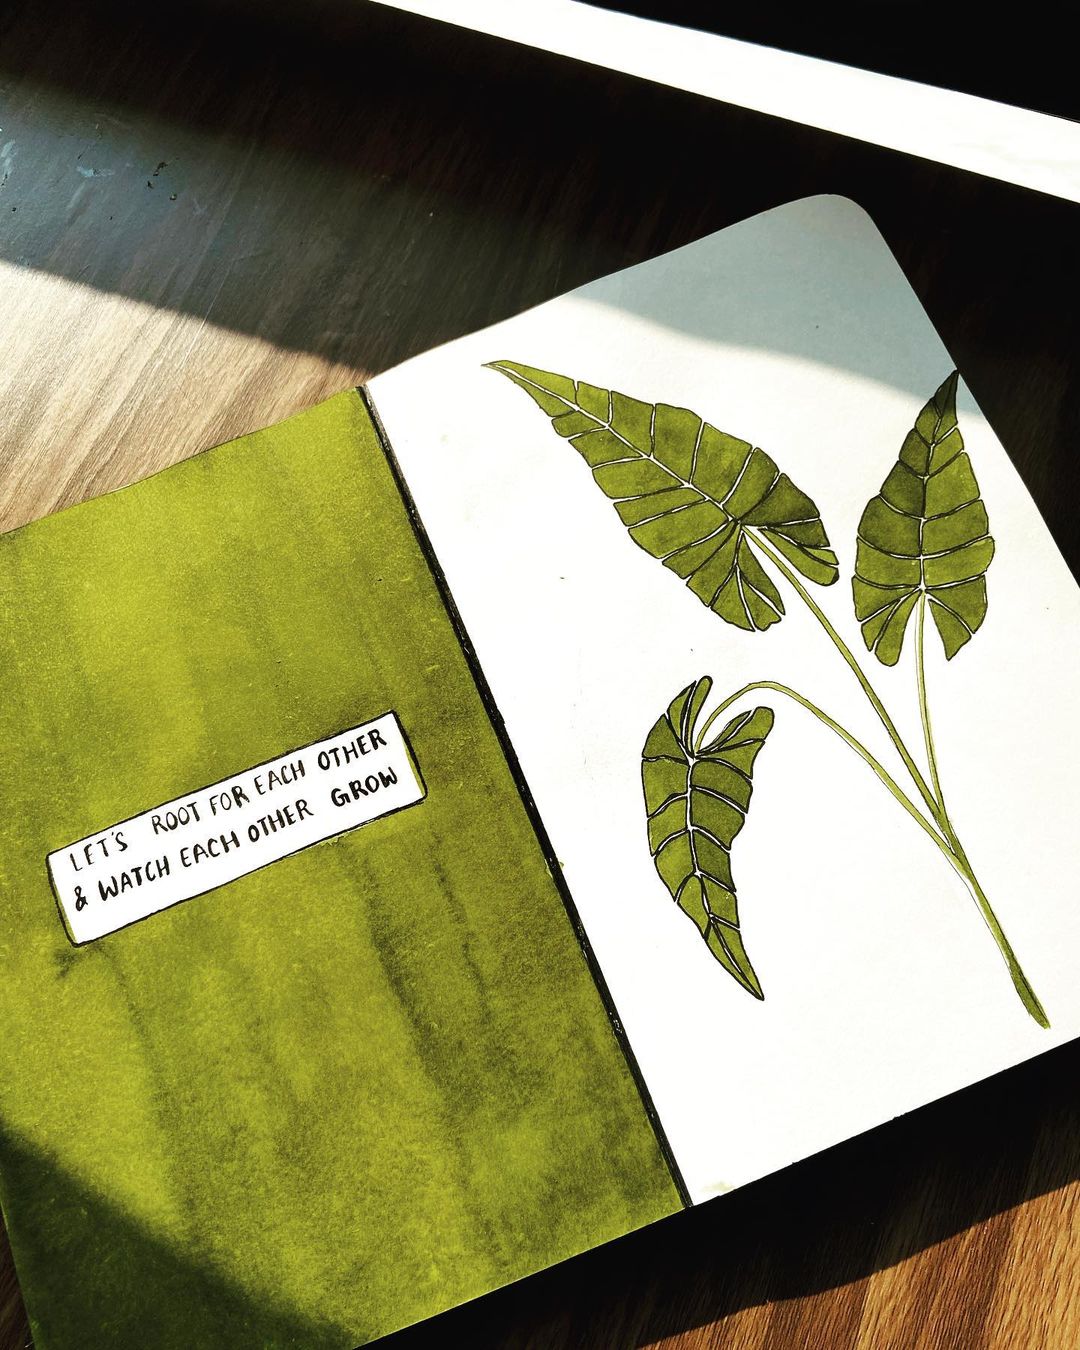 LET'S ROOT FOR EACH OTHER
& WATCH EACH OTHER GROW